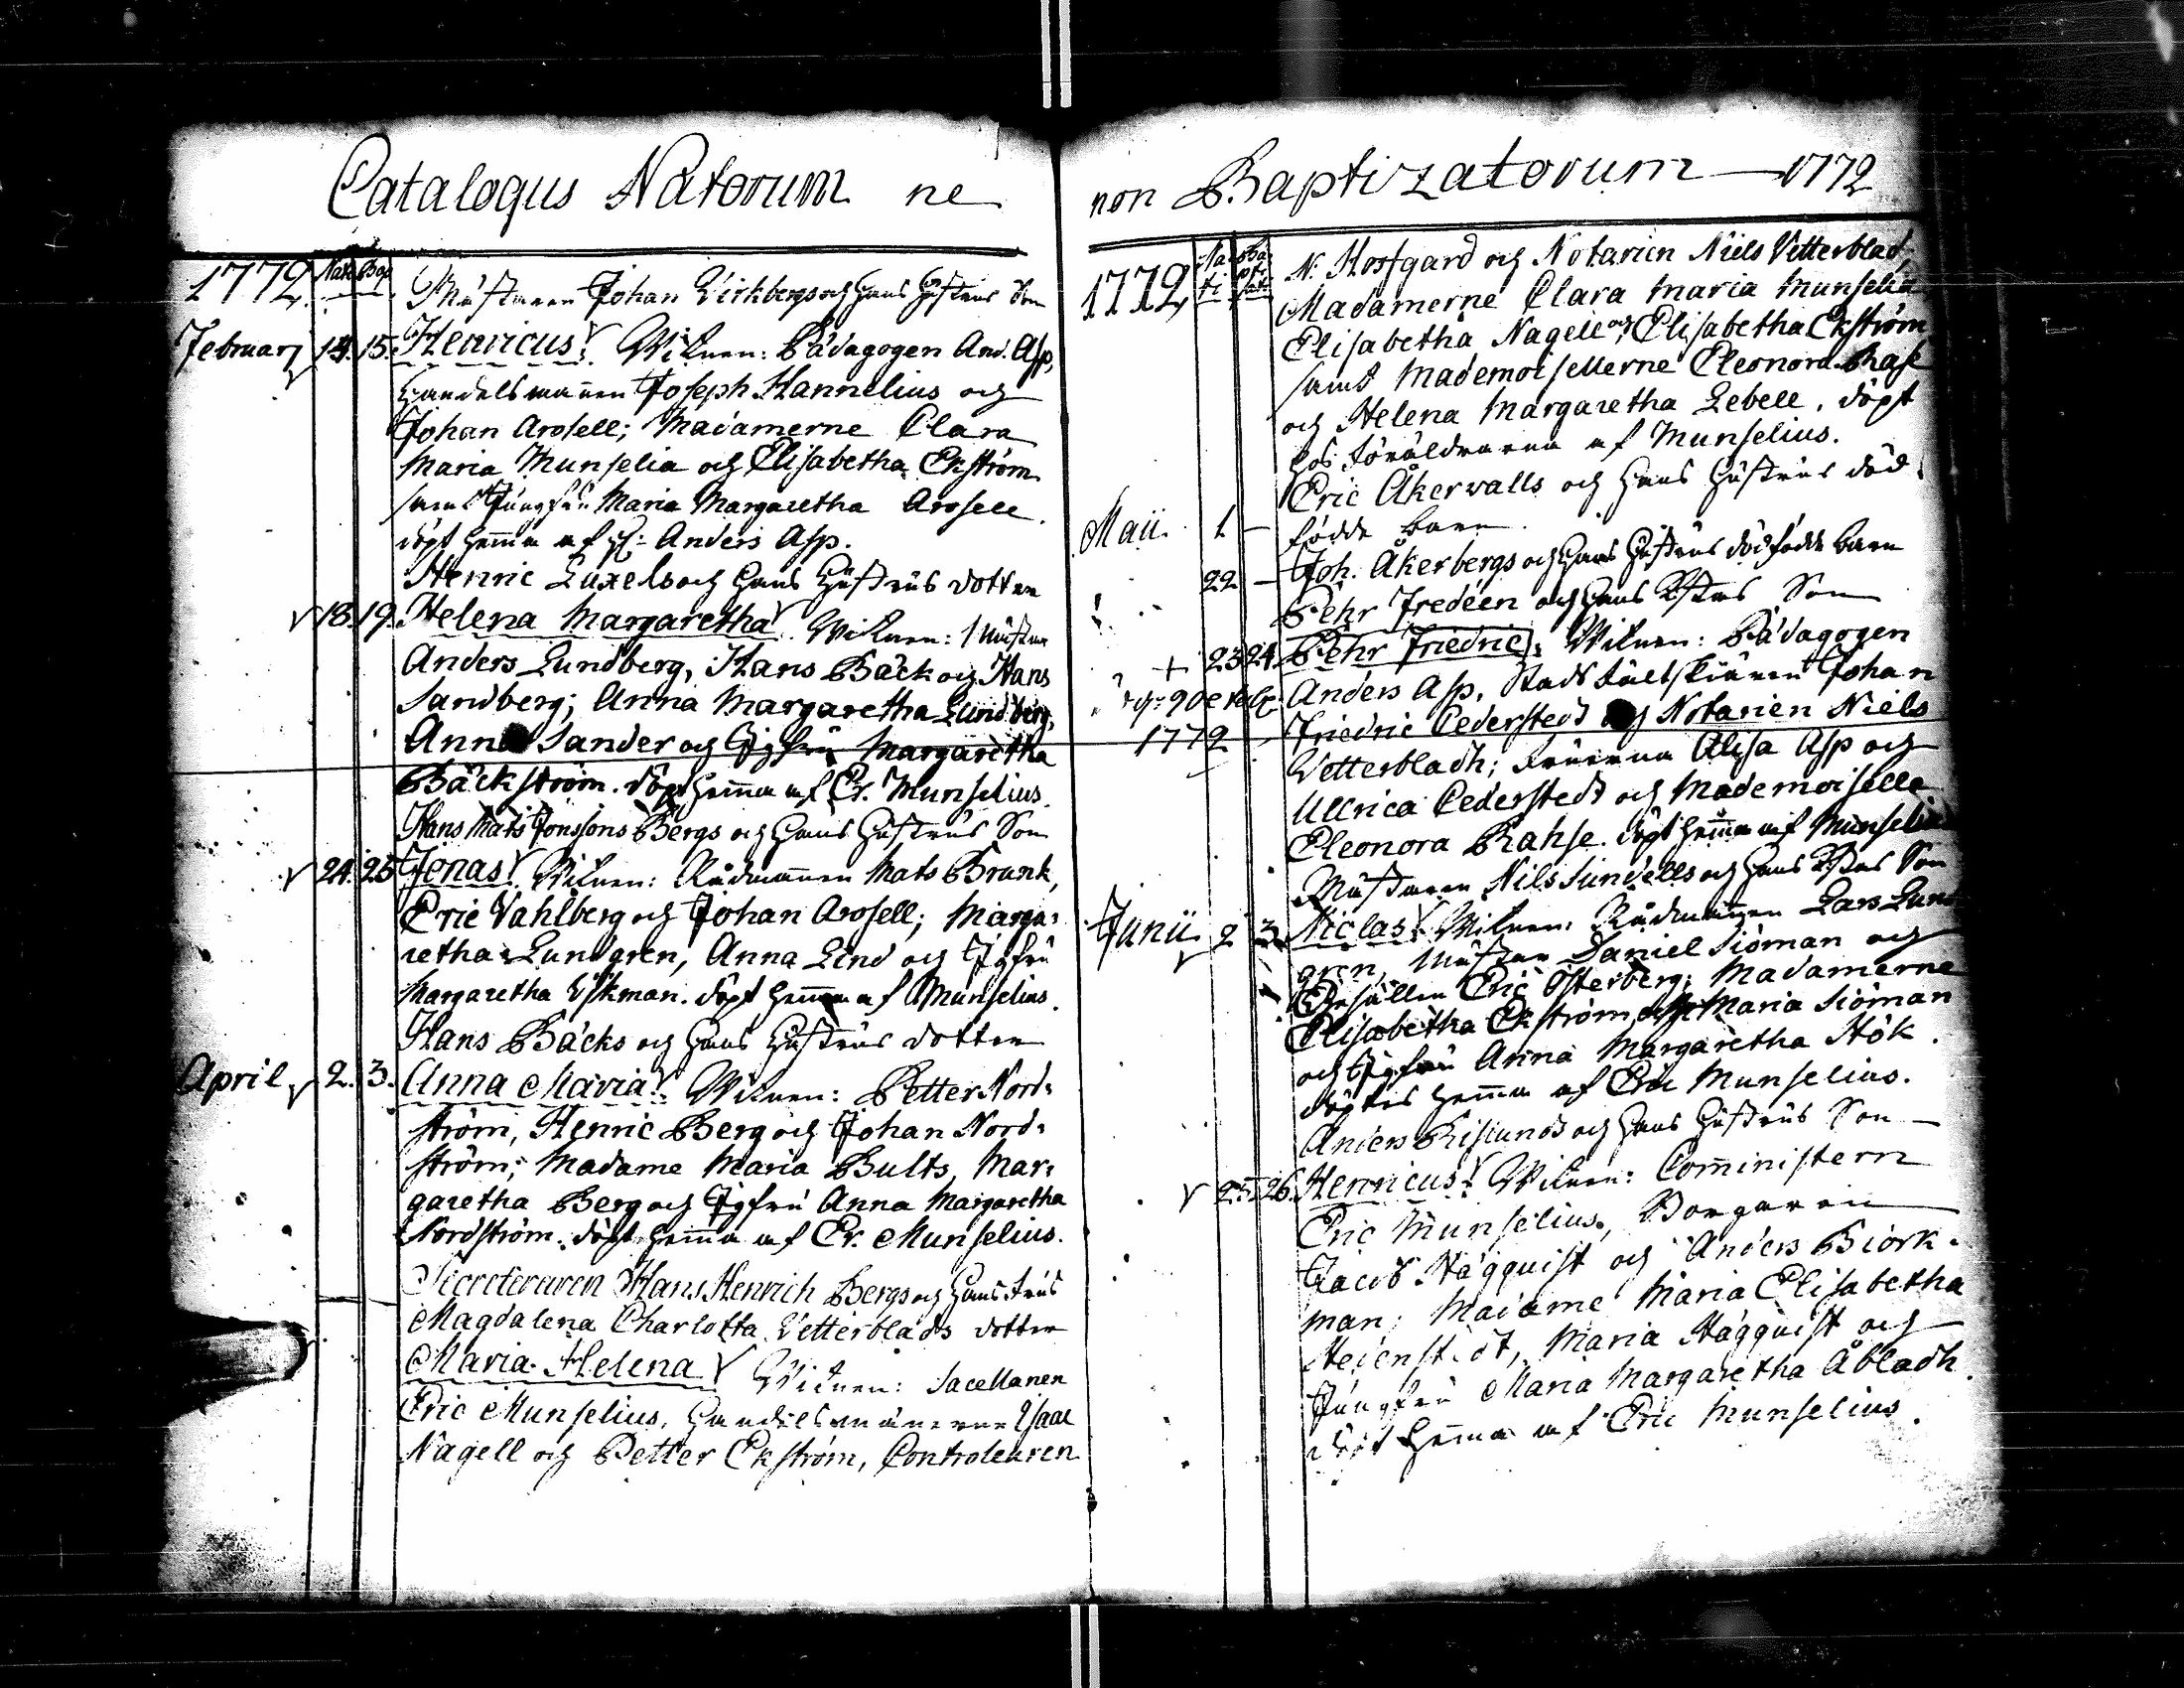 Catalogus Natorum ne
1772. Nati Bap
Mästaren Johan Virkbergs och hans Hustrus Son
Februarj 14. 15. Henricus. Witnen: Pädagogen And. Asp,
Handelsmannen Joseph Hannelius och
Johan Arosell; Madamerne Clara
Maria Munselia och Elisabetha Ekström
samt Jungfru Maria Margaretha Arosell.
döpt hemma af H: Anders Asp.
Henric Luxels och hans Hustrus dotter
18. 19. Helena Margaretha. Witnen: Mästar
Anders Lundberg, Hans Bäck och Hans
Sandberg; Anna Margaretha Lundberg,
Anna Sander och Jgfru Margaretha
Bäckström. döpt hemma af Er. Munselius.
Hans Mats Jonssons Bergs och hans Hustrus Son
24. 25 Jonas. Witnen: Rådmannen Mats Brunk,
Eric Vahlberg och Johan Arosell; Marga-
retha Lundgren, Anna Lind och Jgfru
Margaretha Eskman. döpt hemma af Munselius.
Hans Bäcks och hans Hustrus dotter
April 2. 3. Anna Maria. Witnen: Petter Nord-
ström, Henric Berg och Johan Nord-
ström; Madame Maria Bults, Mar-
garetha Berg och Jgfru Anna Margaretha
Nordström. döpt hemma af Er. Munselius.
Secreteraren Hans Henrich Bergs och hans Frus
Magdalena Charlotta Vetterblads dotter
Maria Helena Witnen: Sacellanen
Eric Munselius, Handelsmännerne Isaac
Nagell och Petter Ekström, Controleuren
non Baptizatorum — 1772
1772 Nati Baptisati
N: Hosfgard och Notarien Niels Vetterblad,
Madamerne Clara Maria Munselia
Elisabetha Nagell och Elisabetha Ekström
samt Mademoisellerne Eleonora Rahse
och Helena Margaretha Lebell. döpt
hos föräldrarna af Munselius.
Eric Åkervalls och hans Hustrus död-
Maii. 1 — födde barn.
22 — Joh. Åkerbergs och hans Hustrus dödfödde barn
Pehr Fredéen och hans Hustrus Son
+ 23 24 Pehr Friedric. Witnen: Pädagogen
Anders Asp, Stads Fältskiären Johan
1772 Friedric Cederstedt och Notarien Niels
Vetterbladh; Fruerna Alisa Asp och
Ullrica Cederstedt och Mademoiselle
Eleonora Rahse. döpt hemma af Munselius
Mästaren Nils Sundells och hans Hustrus Son
Junii 2 3. Niclas. Witnen: Rådmannen Lars Lund-
gren, Mästar Daniel Siöman och
Gesällen Eric Österberg; Madamerne
Elisabetha Ekström, Maria Siöman
och Jgfru Anna Margaretha Hök.
döptes hemma af Eric Munselius.
Anders Rislunds och hans Hustrus Son —
25. 26. Henricus. Witnen: Comministern
Eric Munselius, Borgaren
Jacob Häggquist och Anders Biörk-
man; Madame Maria Elisabetha
Hedenstedt, Maria Häggquist och
Jungfru Maria Margaretha Åbladh.
döpt hemma af Eric Munselius.